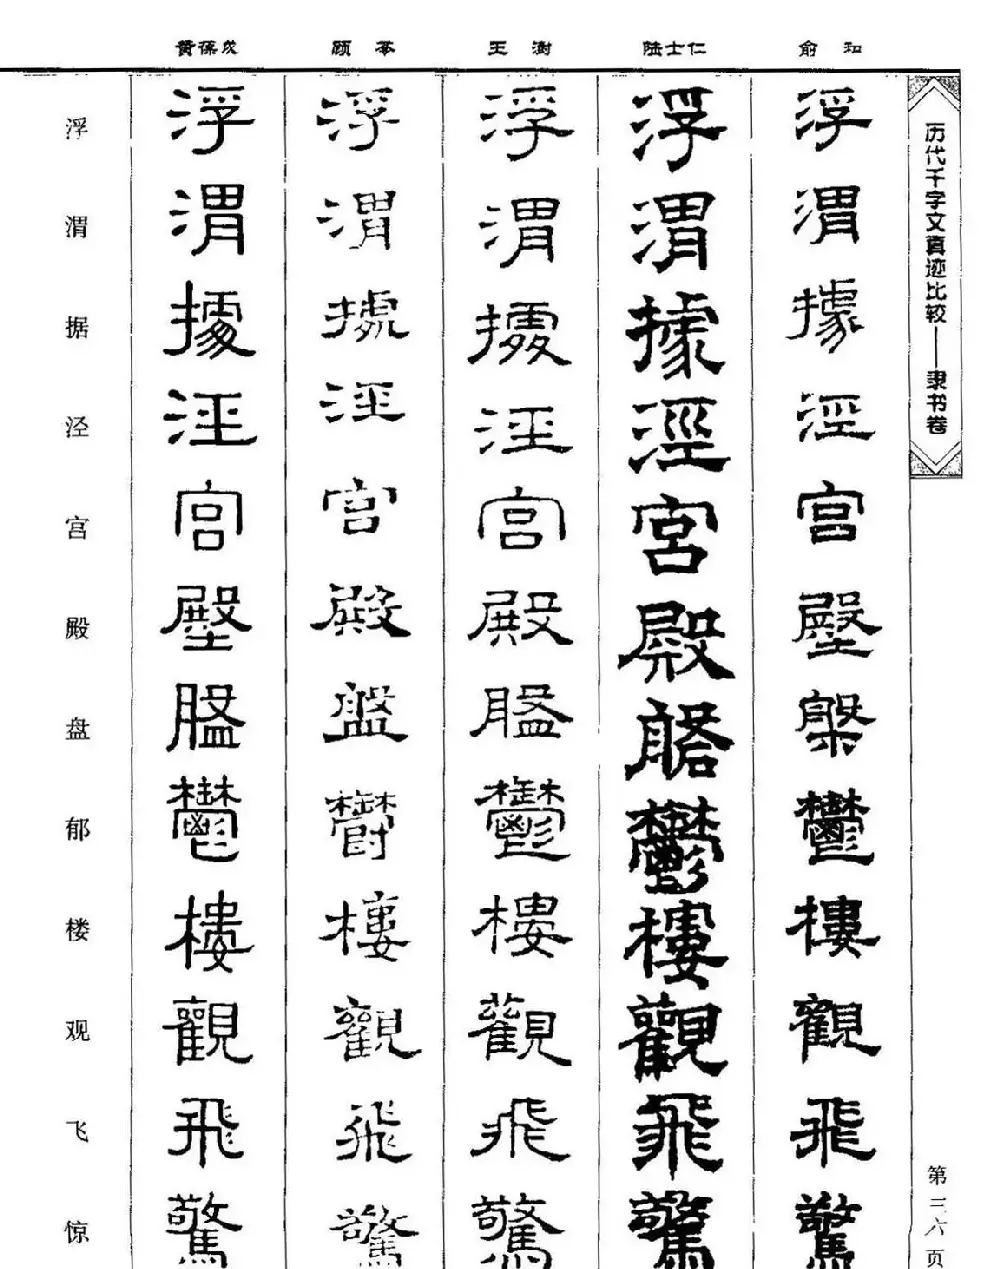 黄葆戉 顾苓 王澍 陆士仁 俞和
历代千字文真迹比较——隶书卷
浮 浮 浮 浮 浮 浮
渭 渭 渭 渭 渭 渭
据 據 據 據 據 據
泾 涇 涇 涇 涇 涇
宫 宫 宫 宫 宮 宫
殿 殿 殿 殿 殿 殿
盘 盤 盤 盤 盤 槃
郁 鬱 鬱 鬱 鬱 鬱
楼 樓 樓 樓 樓 樓
观 觀 觀 觀 觀 觀
飞 飛 飛 飛 飛 飛
惊 驚 驚 驚 驚 驚
第三六页